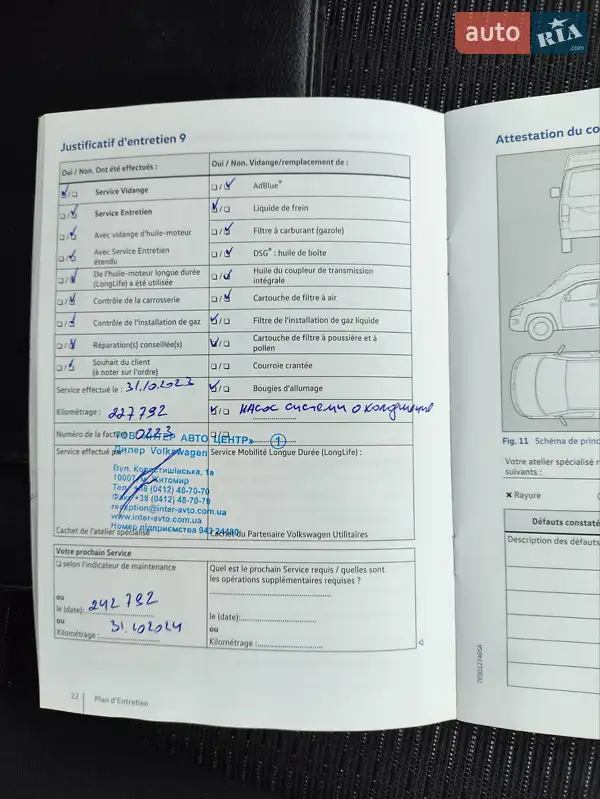 auto RIA .com
Justificatif d'entretien 9
Oui / Non. Ont été effectués :
Oui / Non. Vidange/remplacement de :
Service Vidange
AdBlue®
Service Entretien
Liquide de frein
Avec vidange d'huile-moteur
Filtre à carburant (gazole)
Avec Service Entretien étendu
DSG® : huile de boîte
De l'huile-moteur longue durée (LongLife) a été utilisée
Huile du coupleur de transmission intégrale
Contrôle de la carrosserie
Cartouche de filtre à air
Contrôle de l'installation de gaz
Filtre de l'installation de gaz liquide
Réparation(s) conseillée(s)
Cartouche de filtre à poussière et à pollen
Souhait du client (à noter sur l'ordre)
Courroie crantée
Service effectué le : 31.10.2023
Bougies d'allumage
Kilométrage : 227792
насос системи охолодження
Numéro de la facture : 0223
ТОВ «ІНТЕР АВТО ЦЕНТР» 1
Дилер Volkswagen
Service effectué par
Service Mobilité Longue Durée (LongLife) :
Вул. Коростишівська, 1а
10007, м. Житомир
Тел. +38 (0412) 48-70-70
Факс +38 (0412) 48-70-70
reception@inter-avto.com.ua
www.inter-avto.com.ua
Номер підприємства 943 24480
Cachet de l'atelier spécialisé
Cachet du Partenaire Volkswagen Utilitaires
Votre prochain Service
selon l'indicateur de maintenance
Quel est le prochain Service requis / quelles sont les opérations supplémentaires requises ?
ou
le (date): 242792
le (date):
ou
ou
Kilométrage : 31.10.2024
Kilométrage :
22 Plan d'Entretien
Attestation du co
Fig. 11 Schéma de princ
Votre atelier spécialisé r
suivants :
× Rayure
Défauts constaté
Description des défauts
7E0012740SA